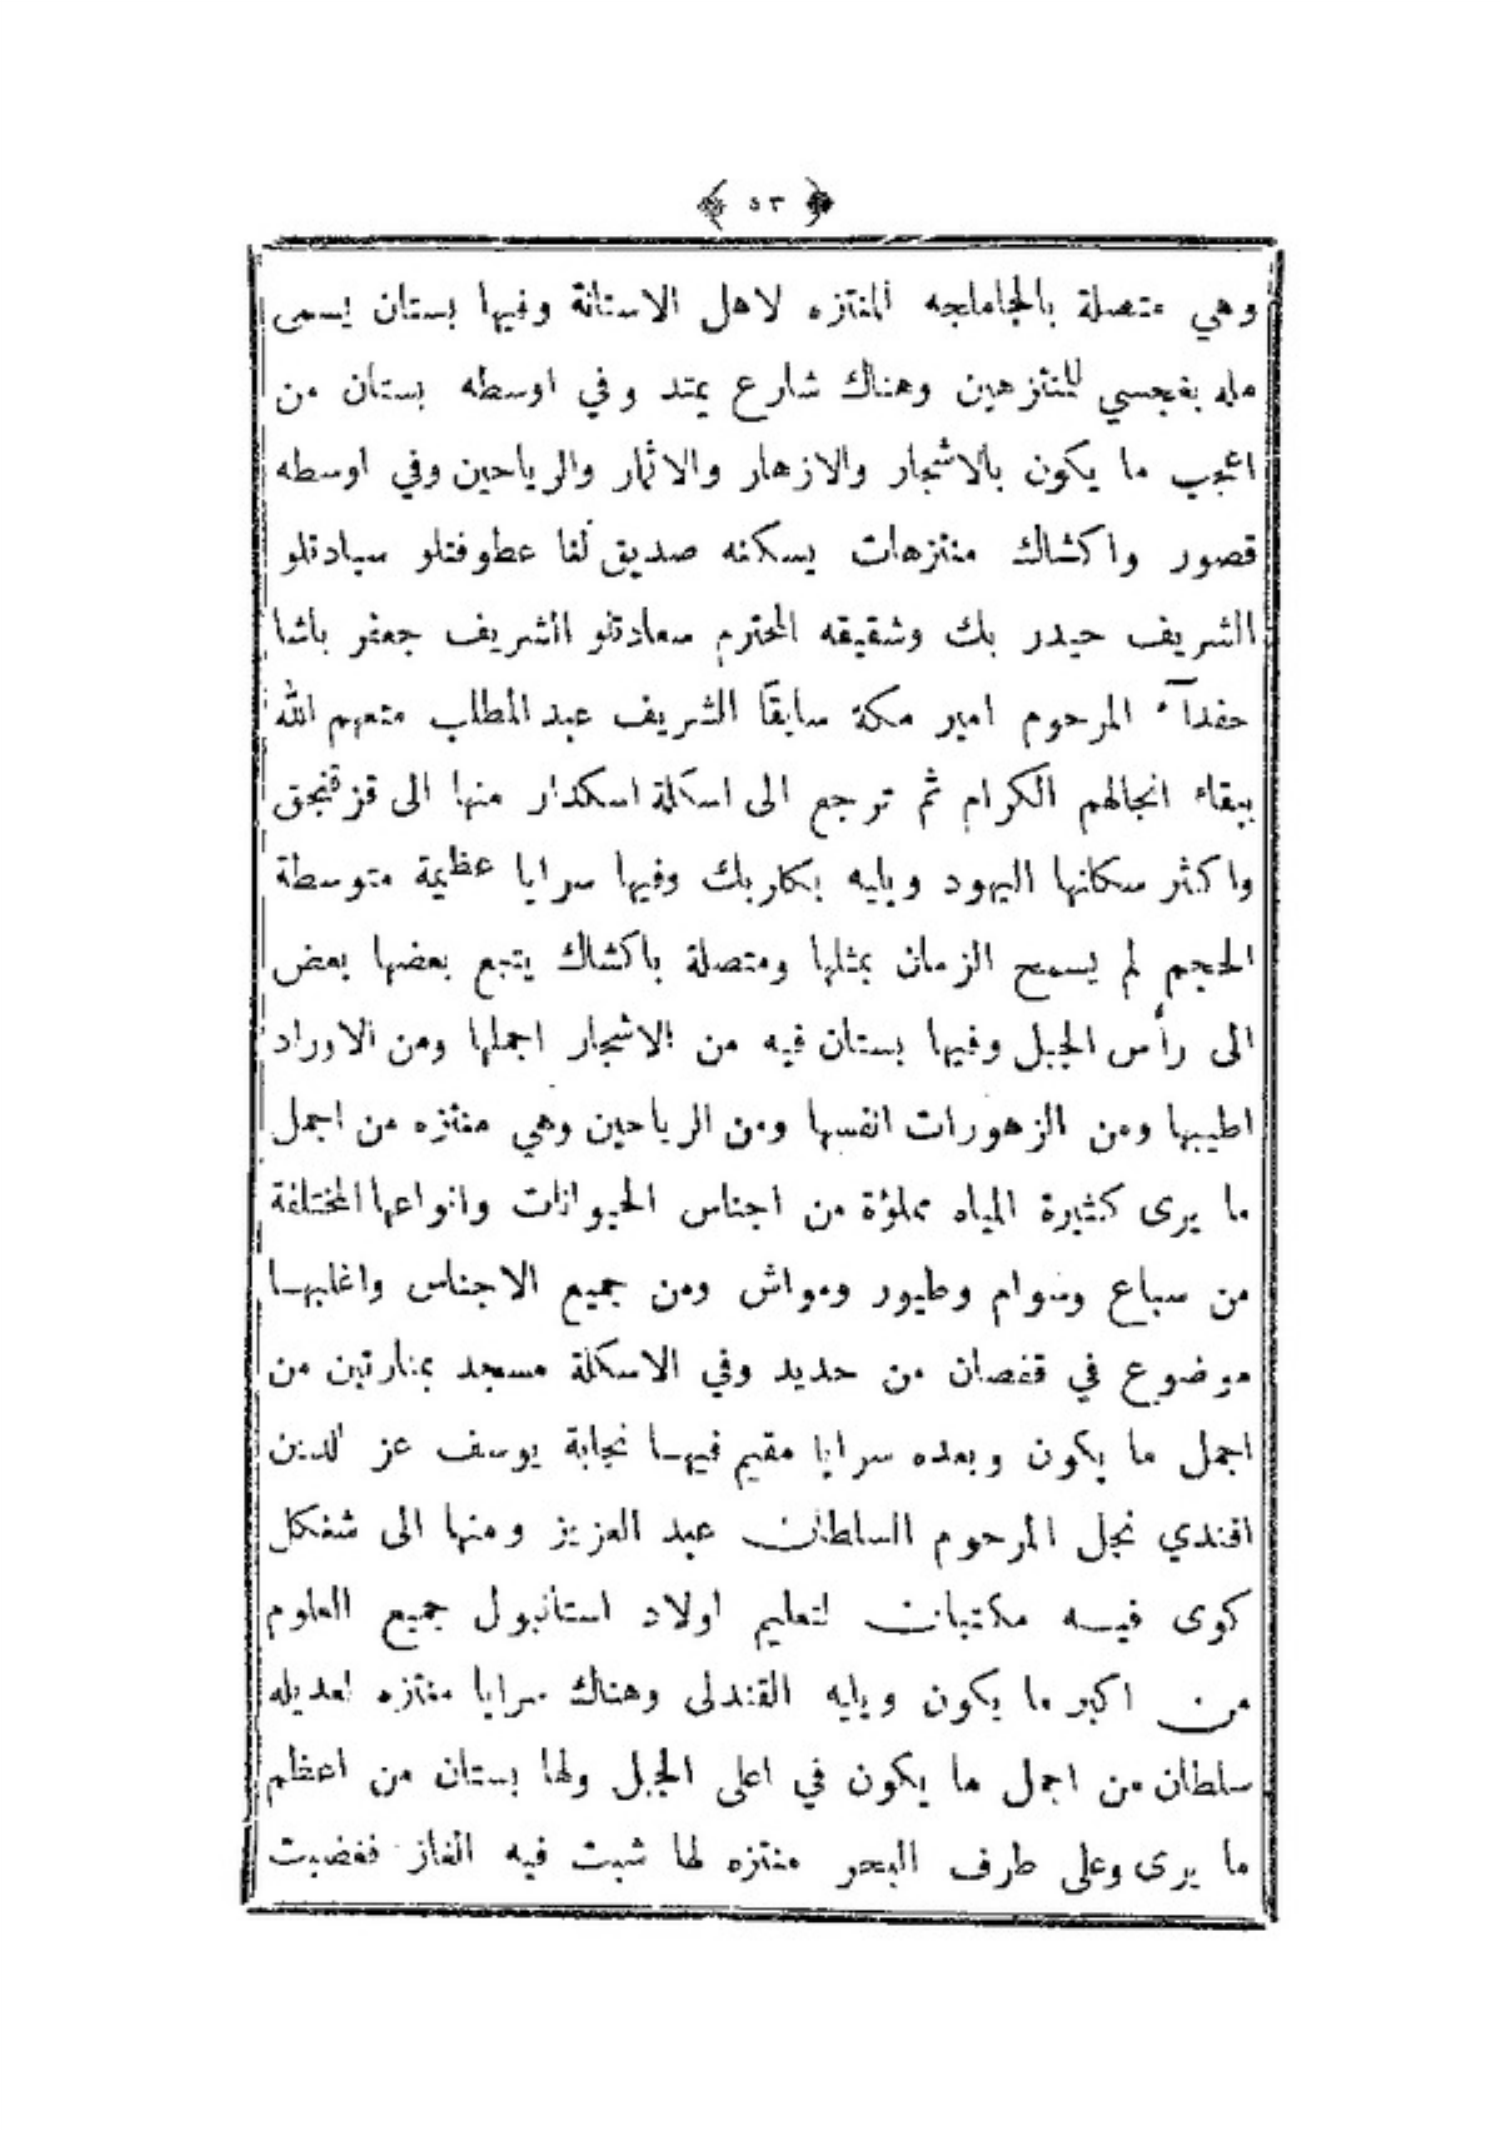 ﴿ ٥٣ ﴾
وهي متصلة بالجاملجه المنتزه لاهل الاستانة وفيها بستان يسمى
مله بغجسي للمنتزهين وهناك شارع يمتد وفي اوسطه بستان من
اعجب ما يكون بالاشجار والازهار والاثمار والرياحين وفي اوسطه
قصور واكشاك منتزهات يسكنه صديق لنا عطوفتلو سيادتلو
الشريف حيدر بك وشقيقه المحترم سعادتلو الشريف جعفر باشا
حفدآء المرحوم امير مكة سابقًا الشريف عبد المطلب متعهم الله
ببقاء انجالهم الكرام ثم ترجع الى اسكلة اسكدار منها الى قزقنجق
واكثر سكانها اليهود ويليه بكاربك وفيها سرايا عظيمة متوسطة
الحجم لم يسمح الزمان بمثلها ومتصلة باكشاك يتبع بعضها بعض
الى رأس الجبل وفيها بستان فيه من الاشجار اجملها ومن الاوراد
اطيبها ومن الزهورات انفسها ومن الرياحين وهي منتزه من اجمل
ما يرى كثيرة المياه مملؤة من اجناس الحيوانات وانواعها المختلفة
من سباع وسوام وطيور ومواش ومن جميع الاجناس واغلبها
موضوع في قفصان من حديد وفي الاسكلة مسجد بمنارتين من
اجمل ما يكون وبعده سرايا مقيم فيها نجابة يوسف عز الدين
افندي نجل المرحوم السلطان عبد العزيز ومنها الى شنكل
كوى فيه مكتبان لتعليم اولاد استانبول جميع العلوم
من اكبر ما يكون ويليه القندلى وهناك سرايا منتزه لعديله
سلطان من اجمل ما يكون في اعلى الجبل ولها بستان من اعظم
ما يرى وعلى طرف البحر منتزه لها شبت فيه الغاز فغضبت